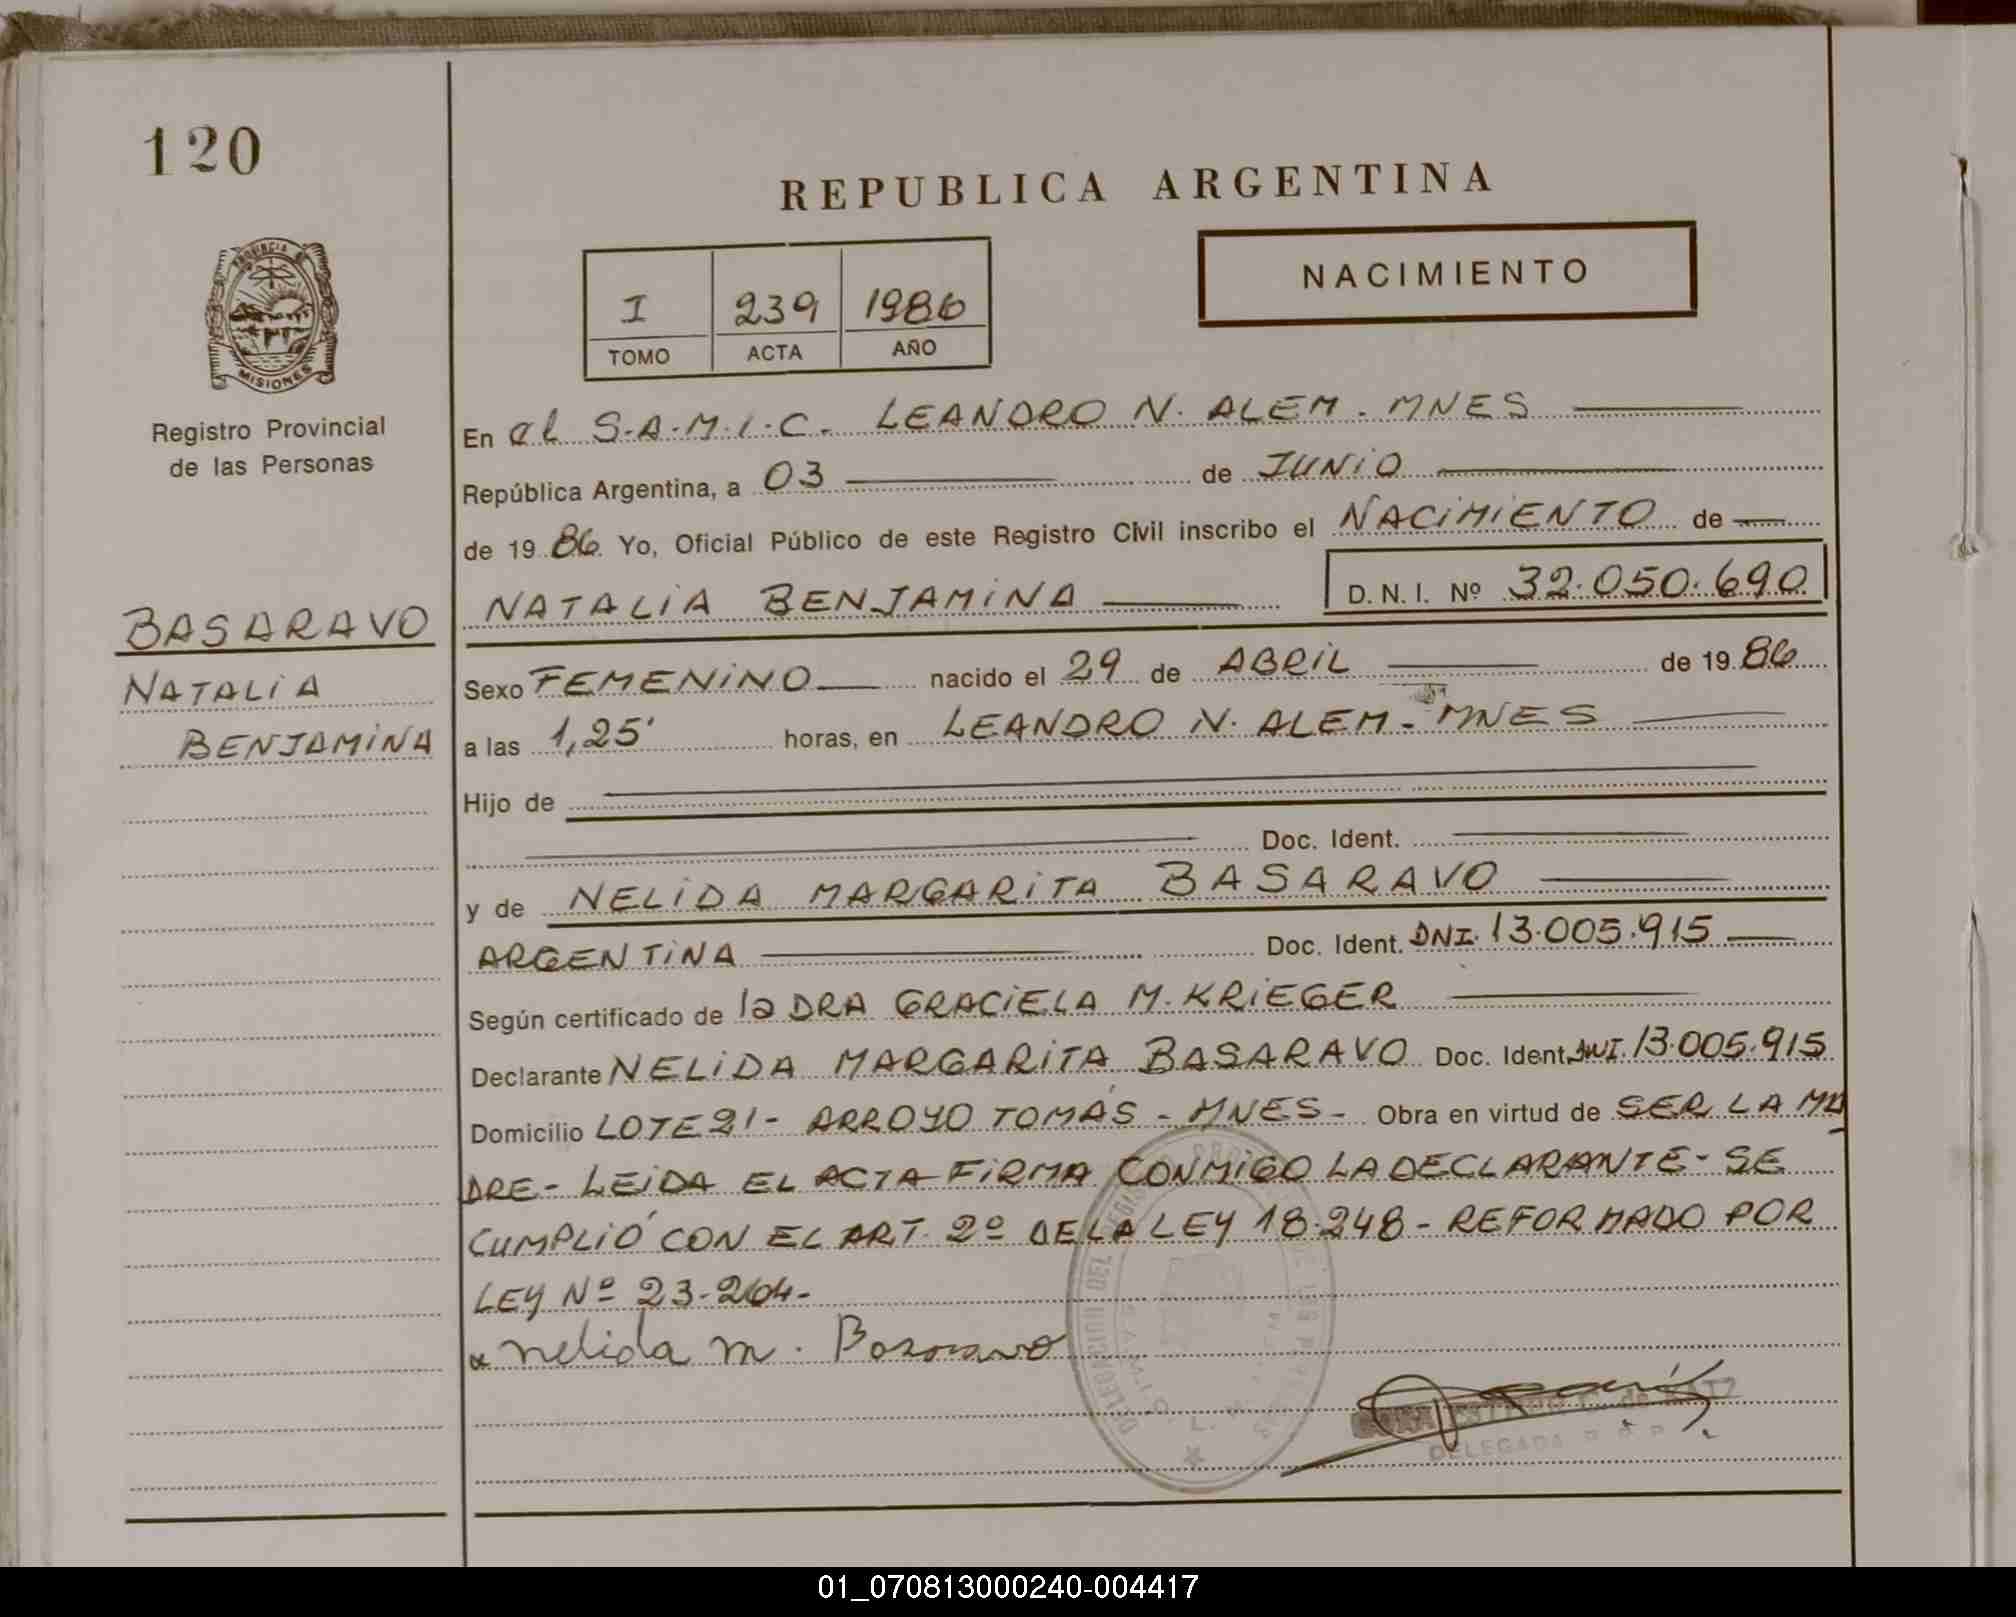 120
REPUBLICA ARGENTINA
PROVINCIA
MISIONES
NACIMIENTO
I 239 1986
TOMO ACTA AÑO
Registro Provincial
de las Personas
En el S.A.M.I.C. LEANDRO N. ALEM - MNES
República Argentina, a 03 de JUNIO
de 1986 Yo, Oficial Público de este Registro Civil inscribo el NACIMIENTO de
NATALIA BENJAMINA D. N. I. Nº 32.050.690
BASARAVO
NATALIA
BENJAMINA
Sexo FEMENINO nacido el 29 de ABRIL de 1986
a las 1,25' horas, en LEANDRO N. ALEM - MNES
Hijo de
Doc. Ident.
y de NELIDA MARGARITA BASARAVO
ARGENTINA Doc. Ident. DNI. 13.005.915
Según certificado de la DRA GRACIELA M. KRIEGER
Declarante NELIDA MARGARITA BASARAVO Doc. Ident. DNI. 13.005.915
Domicilio LOTE 21 - ARROYO TOMÁS - MNES - Obra en virtud de SER LA MA
DRE - LEIDA EL ACTA FIRMA CONMIGO LA DECLARANTE - SE
CUMPLIÓ CON EL ART. 2º DE LA LEY 18.248 - REFORMADO POR
LEY Nº 23.264.
x Nelida M. Basaravo
DELEGACION DEL REGISTRO
DELEGADA R. P. P.
01_070813000240-004417